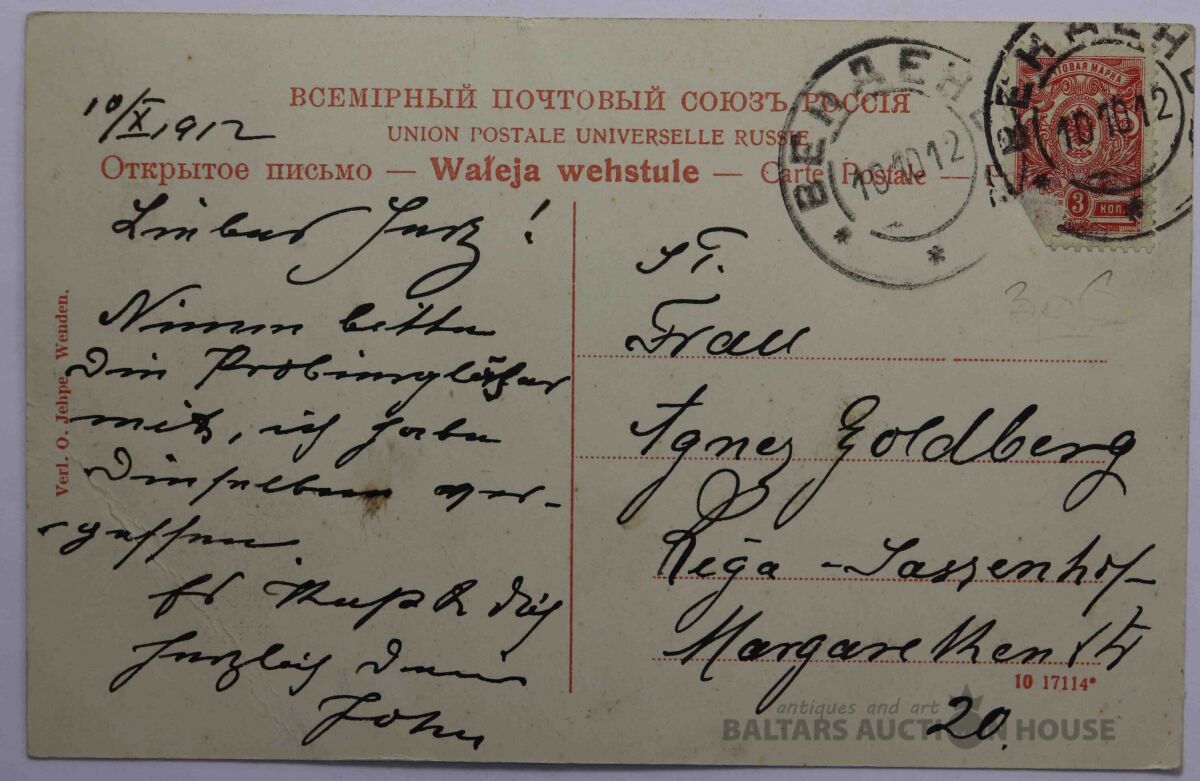 10/X 1912
ВСЕМІРНЫЙ ПОЧТОВЫЙ СОЮЗЪ РОССІЯ
UNION POSTALE UNIVERSELLE RUSSIE
Открытое письмо — Waļeja wehstule — Carte Postale —
ВЕНДЕН
10 10 12
ВЕНДЕНЪ
10 10 12
МАРКА
3 КОП.
Liebes Herz!
Nimm bitte
die Probiergläser
mit, ich habe
dieselben ver-
gessen.
Es küsst Dich
herzlich Dein
John
Verl. O. Jehpe, Wenden.
Fr.
Frau
Agnes Goldberg
Riga - Sassenhof
Margarethen Str
20.
10 17114*
antiques and art
BALTARS AUCTION HOUSE